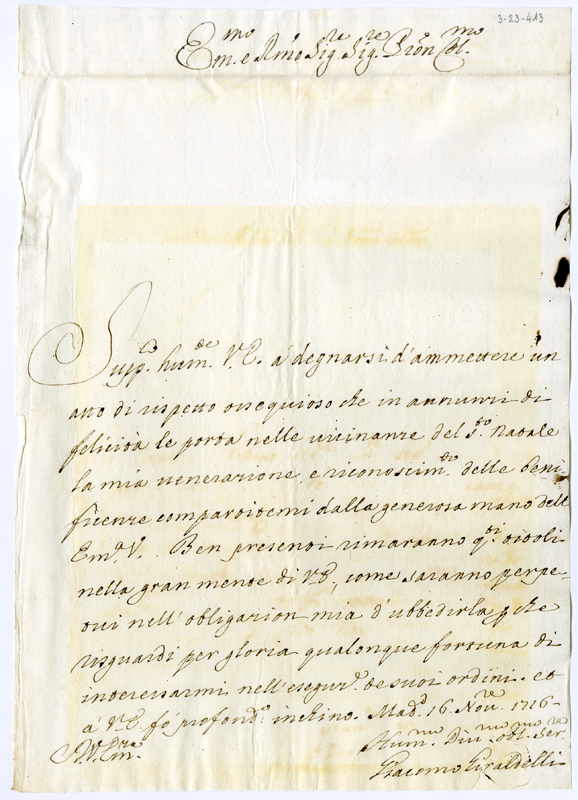 3-23-413
Em.mo e R.mo Sig.re Sig.re Pron Col.mo
Supp.co hum.de V.E. á degnarsi d'ammettere un
atto di rispetto ossequioso che in annunzi di
felicità le porta nelle vicinanze del S.to Natale
la mia venerazione, e riconoscim.to delle beni-
ficenze compartitemi dalla generosa mano dell'
Em.a V. Ben presenti rimaranno q.ti titoli
nella gran mente di V.E., come saranno perpe-
tui nell'obligazion mia d'ubbedirla, che
risguardi per gloria qualonque fortuna di
interessarmi nell'esegur.e de suoi ordini. et
á V.E. fó profond.o inchino. Mad.d 16. Nov.re 1716-
Hum.mo Div.mo obl.mo Ser.re
Giacomo Giraldelli